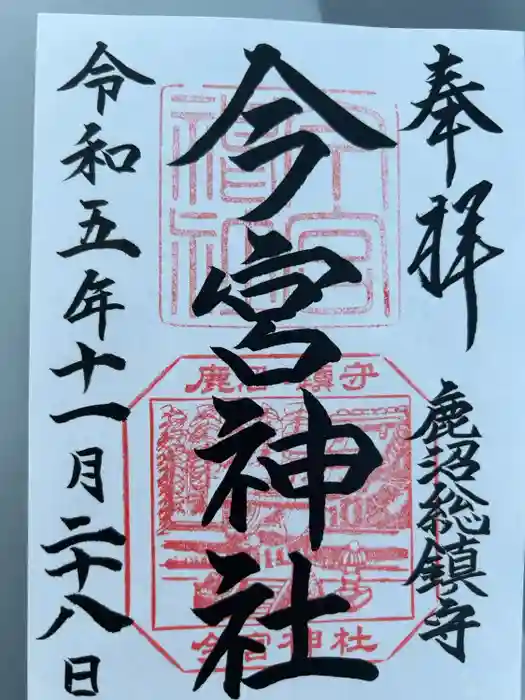 奉拝
鹿沼総鎮守
今宮神社
令和五年十一月二十八日
鹿沼総鎮守
今宮神社